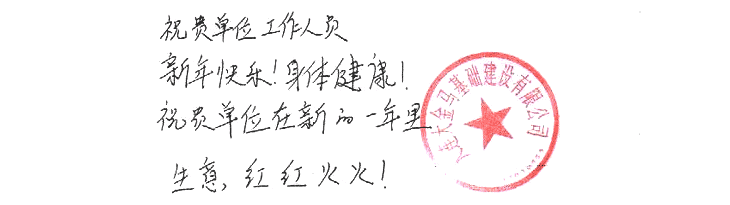 祝贵单位工作人员
新年快乐!身体健康!
祝贵单位在新的一年里
生意,红红火火!
大连大金马基础建设有限公司